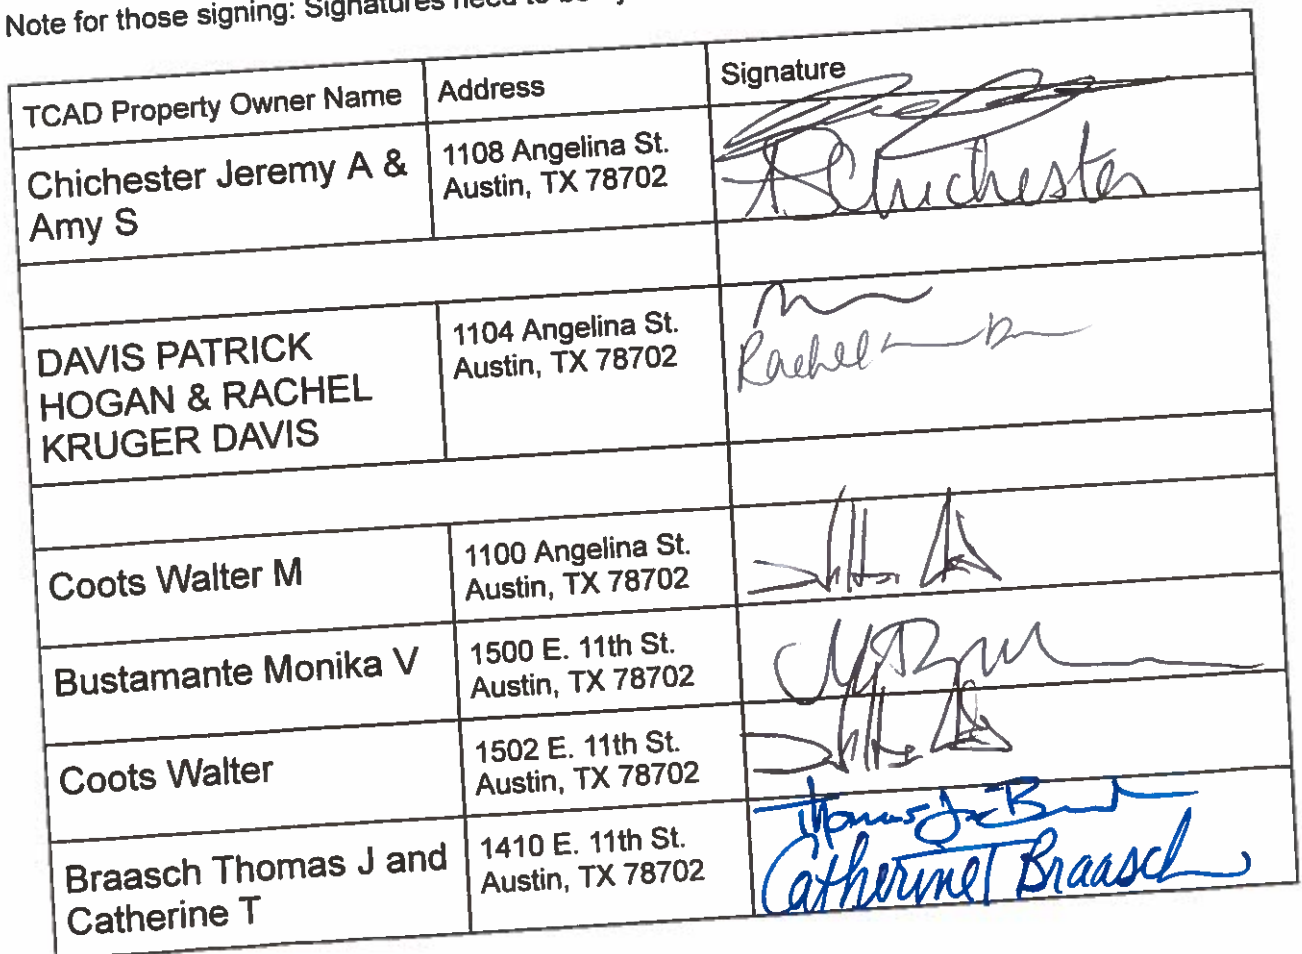 Note for those signing: Signatures need to be
TCAD Property Owner Name
Address
Signature
Chichester Jeremy A &
Amy S
1108 Angelina St.
Austin, TX 78702
A S Chichester
DAVIS PATRICK
HOGAN & RACHEL
KRUGER DAVIS
1104 Angelina St.
Austin, TX 78702
Rachel
Coots Walter M
1100 Angelina St.
Austin, TX 78702
Bustamante Monika V
1500 E. 11th St.
Austin, TX 78702
Coots Walter
1502 E. 11th St.
Austin, TX 78702
Braasch Thomas J and
Catherine T
1410 E. 11th St.
Austin, TX 78702
Thomas
Catherine T Braasch